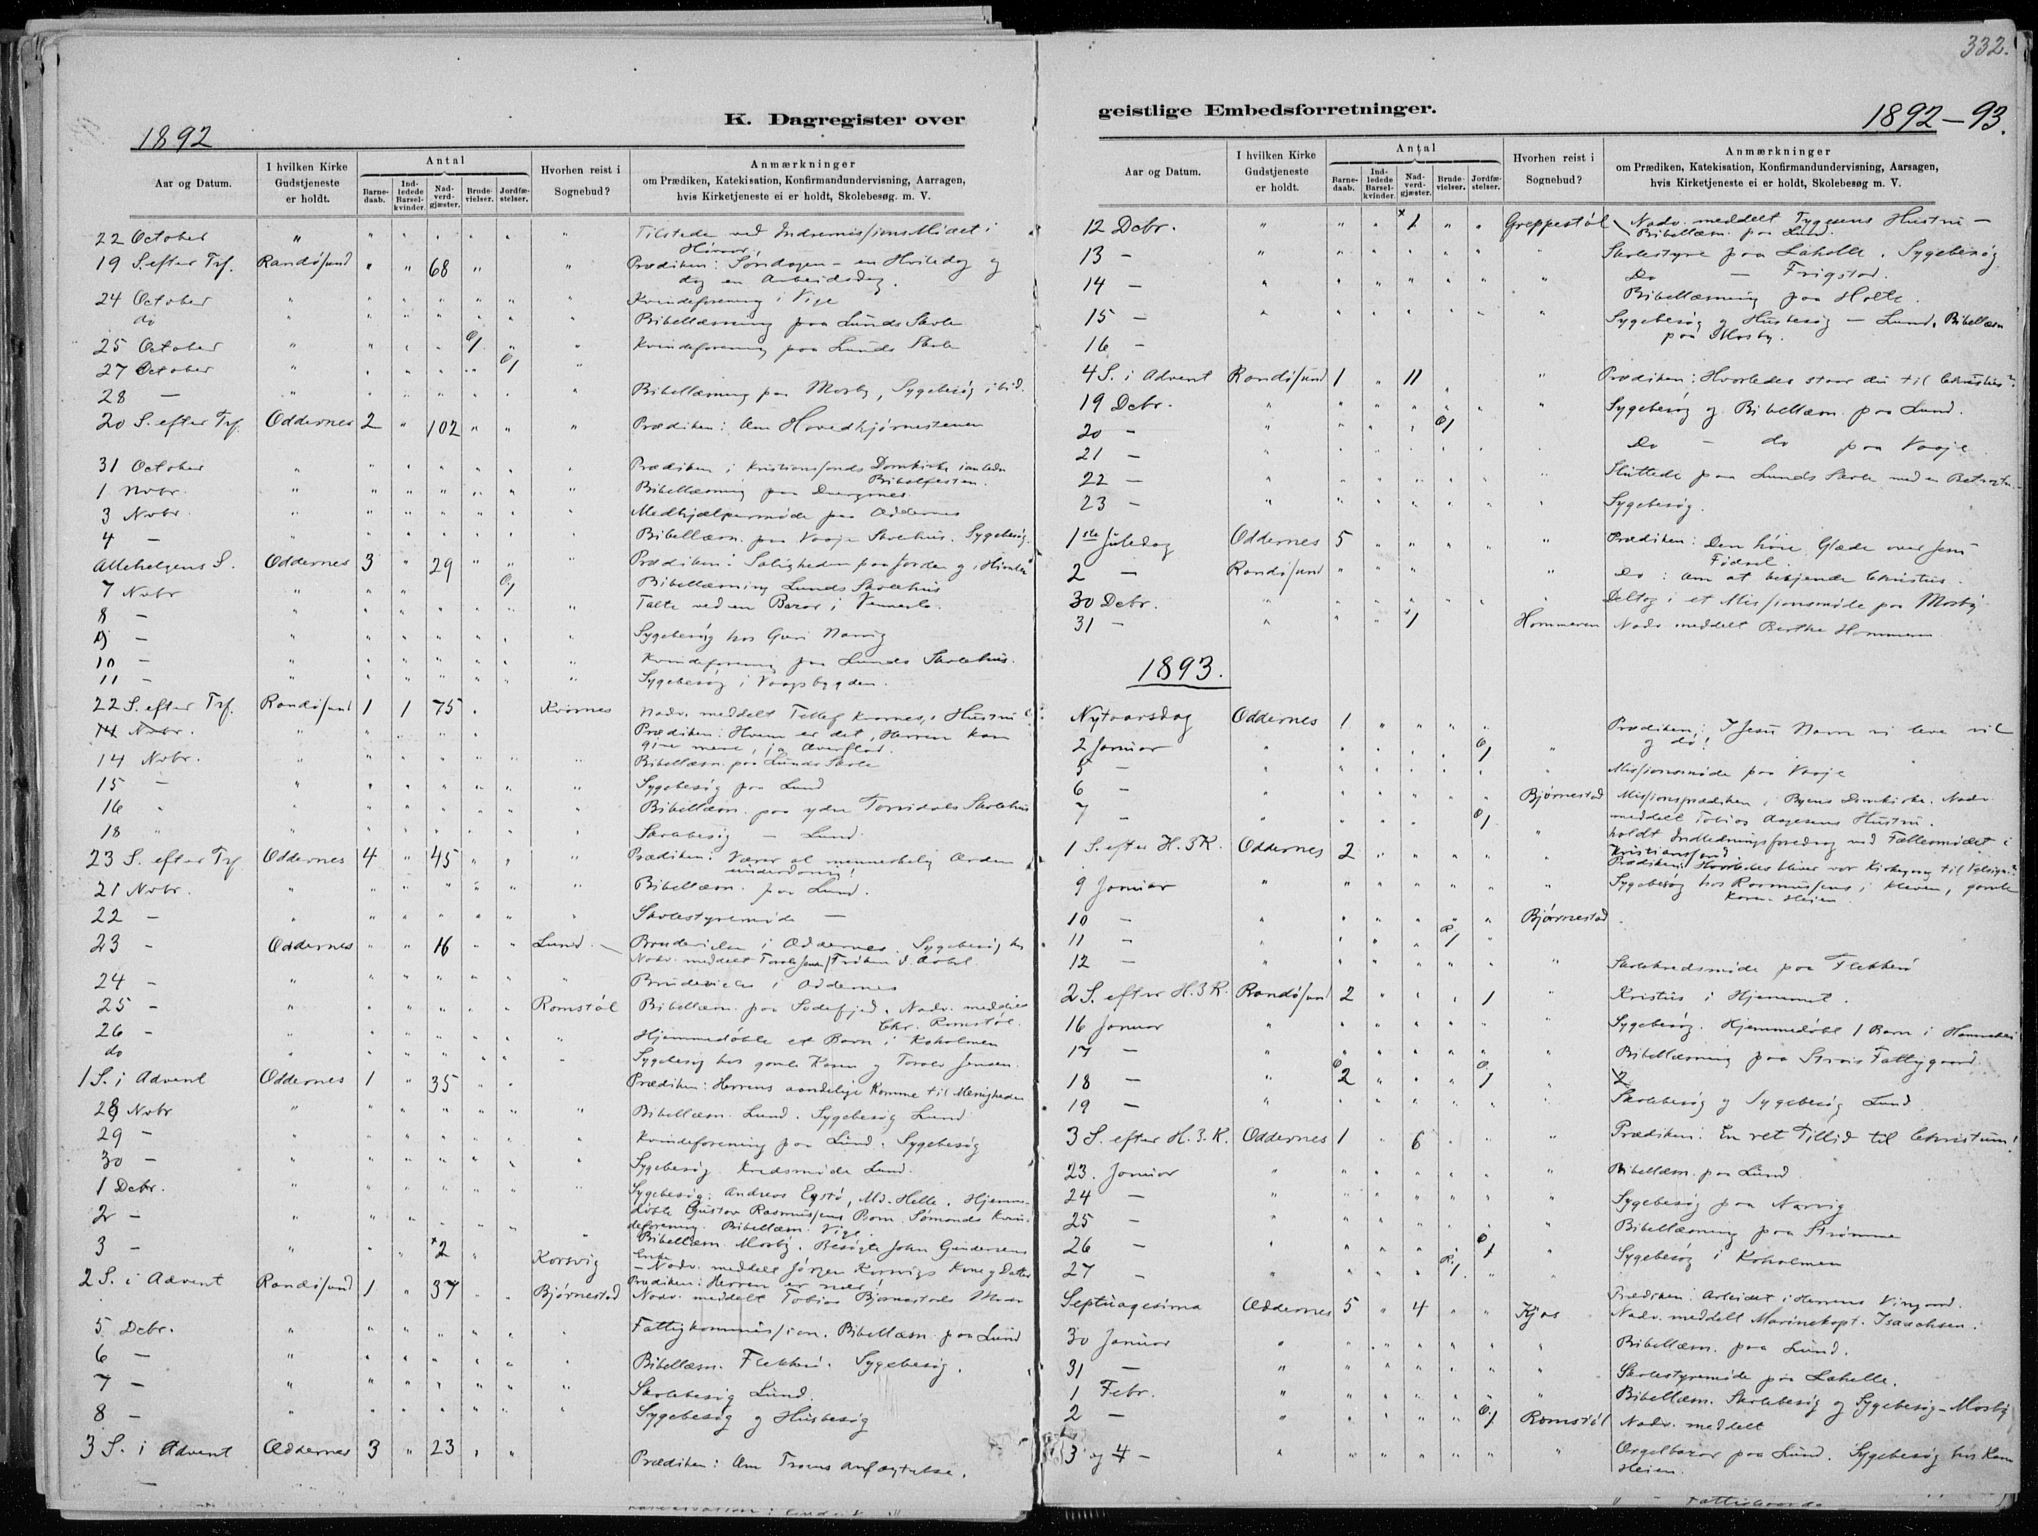 332.
K. Dagregister over
1892
Aar og Datum.
I hvilken Kirke Gudstjeneste er holdt.
Antal
Barnedaab.
Indledede Barselkvinder.
Nadverdgjæster.
Brudevielser.
Jordfæstelser.
Hvorhen reist i Sognebud?
Anmærkninger
om Prædiken, Katekisation, Konfirmandundervisning, Aarragen,
hvis Kirketjeneste ei er holdt, Skolebesøg. m. V.
22 October " Tilstede ved Indremissions Mødet i
19 S. efter Trf. Randøsund " " 68 " " Prædiken: Søndagen – en Hviledag og
dog en Arbeidsdag.
24 October Kvindeforening i Vige
do Bibellæsning paa Lunds Skole
25 October 0/1 Kvindeforening paa Lunds Skole
27 October 0/1
28 — Bibellæsning paa Mosby, Sygebesøg ibid.
20 S. efter Trf. Oddernes 2 " 102 " " Prædiken: Om Hovedhjørnestenen
31 October Prædiken i Kristiansands Domkirke
Bibelfesten.
1 Nvbr. Bibellæsning paa
3 Nvbr. Medhjælpermøde paa Oddernes
4 — Bibellæsn. paa Vaaje Skolehus. Sygebesøg.
Allehelgens S. Oddernes 3 " 29 " " Prædiken: Saligheden paa Jorden og i Himlen
7 Nvbr 0/1 Bibellæsning Lunds Skolehus
8 — Talte ved en Bazar i Vennesla.
9 — Sygebesøg hos Guri Narvig
10 — Kvindeforening paa Lunds Skolehus.
11 — Sygebesøg i Vaagsbygden.
22 S. efter Trf. Randøsund 1 1 75 Kvarnes Nadv. meddelt Tellef Kvarnes' Hustru
14 Nvbr. Prædiken: Hvem er det, Herren kan
give mere, ja Overflod.
14 Nvbr. Bibellæsn. paa Lunds Skole
15 — Sygebesøg paa Lund
16 " Bibellæsn. paa ydre Torridals Skolehus
18 " Skolebesøg — Lund.
23 S. efter Trf Oddernes 4 " 45 Prædiken: Værer al menneskelig Orden
underdanig!
21 Nvbr. Bibellæsn. paa Lund.
22 — Skolestyremøde —
23 - Oddernes " " 16 " " Lund. — Brudevielse i Oddernes. Sygebesøg
24 - Brudevielse i Oddernes
25 - Romstøl Bibellæsn. paa Nadv. meddelt
Chr. Romstøl.
26 - Hjemmedøbte et Barn i Koholmen
do Sygebesøg hos gamle Karen og Torolv Jensen.
1 S. i Advent Oddernes 1 " 35 Prædiken: Herrens aandelige Komme til Menigheden
28 Nvbr Bibellæsn. Lund. Sygebesøg Lund
29 - Kvindeforening paa Lund. Sygebesøg
30 - Sygebesøg. Kredsmøde Lund.
1 Dcbr. Sygebesøg: Andreas Egstø, Md. Helle. Hjemmedøbte
2 - Gustav Rasmussens Barn.
Bibellæsn. Vige.
3 - × 2 Korsvig Bibellæsn. Mosby. Besøgte John Gundersens
Enke
— Nadv. meddelt Jørgen Korsvigs Kone og Datter
2 S. i Advent Randøsund 1 " 37 Bjørnestad Prædiken: Herren er nær!
Nadv. meddelt Tobias Bjørnestads Moder
5 Dcbr. Fattigkommission. Bibellæsn. paa Lund
6 — Bibellæsn. Flekkerø. Sygebesøg.
7 — Skolebesøg Lund.
8 — Sygebesøg og Husbesøg
3 S. i Advent Oddernes 3 " 23 Prædiken: Om Troens Anfægtelse.
geistlige Embedsforretninger.
1892–93.
Aar og Datum.
I hvilken Kirke Gudstjeneste er holdt.
Antal
Barnedaab.
Indledede Barselkvinder.
Nadverdgjæster.
Brudevielser.
Jordfæstelser.
Hvorhen reist i Sognebud?
Anmærkninger
om Prædiken, Katekisation, Konfirmandundervisning, Aarsagen,
hvis Kirketjeneste ei er holdt, Skolebesøg m. V.
12 Dcbr. × 1 Greppestøl Nadv. meddelt Tygesens Hustru —
Bibellæsn. paa Lund.
13 — Skolestyre paa Lahelle. Sygebesøg.
14 — Do — Frigstad.
Bibellæsning paa Holte.
15 — Sygebesøg og Husbesøg — Lund. Bibellæsn
16 — paa Mosby.
4 S. i Advent Randøsund 1 " 11 Prædiken: Hvorledes staar du til Christus?
19 Dcbr. Sygebesøg og Bibellæsn. paa Lund.
20 - 0/1
21 — Do — do paa Vaaje
22 — Sluttede paa Lunds Skole med en
23 — Sygebesøg.
1ste Juledag Oddernes 5 Prædiken: Den høie Glæde over Jesu
Fødsel.
2 — Randøsund Do: Om at bekjende Christus.
30 Dcbr. Deltog i et Missionsmøde paa Mosby
31 — × 1 Hommeren Nadv. meddelt Berthe Hommeren
1893.
Nytaarsdag Oddernes 1 Prædiken: I Jesu Navn vi leve vil
og dø!
2 Januar 0/1
5 — Missionsmøde paa Vaaje
6 — Bjørnestad Missionsprædiken i Byens Domkirke. Nadv.
7 — 0/1 meddelt Tobias Aagesens Hustru.
holdt Indledningsforedrag ved Fællesmødet i
Kristianssand.
1 S. efter H. 3 K. Oddernes 2 Prædiken: Hvorledes bliver vor Kirkegang til Velsign.?
9 Januar Sygebesøg hos Rasmussens i Kleven, gamle
Karen Heien
10 — Bjørnestad.
11 — 0/1
12 — Skolekredsmøde paa Flekkerø
2 S. efter H. 3 K. Randøsund 2 " " " 1 Kristus i Hjemmet.
16 Januar Sygebesøg. Hjemmedøbt 1 Barn i
17 — Bibellæsning paa Strais Fattiggaard.
18 — 0/2 0/1 2
19 — Skolebesøg og Sygebesøg Lund
3 S. efter H. 3. K. Oddernes 1 " 6 Prædiken: En ret Tillid til Christum!
23. Januar Bibellæsn. paa Lund
24 — Sygebesøg paa Narvig
25 — Bibellæsning paa Strømme
26 — 0/1 Sygebesøg i Koholmen
27 — 0/1
Septuagesima Oddernes 5 " 4 Kjos Prædiken: Arbeidet i Herrens Vingaard.
Nadv. meddelt Marinekapt. Isaachsen.
30 Januar Bibellæsn. paa Lund.
31 — Skolestyremøde paa Lahelle.
1 Febr. Bibellæsn. Skolebesøg og Sygebesøg – Mosby
2 — 0/1 Romstøl Nadv. meddelt
3 og 4 — Orgelbazar paa Lund. Sygebesøg hos Karen
Heien.